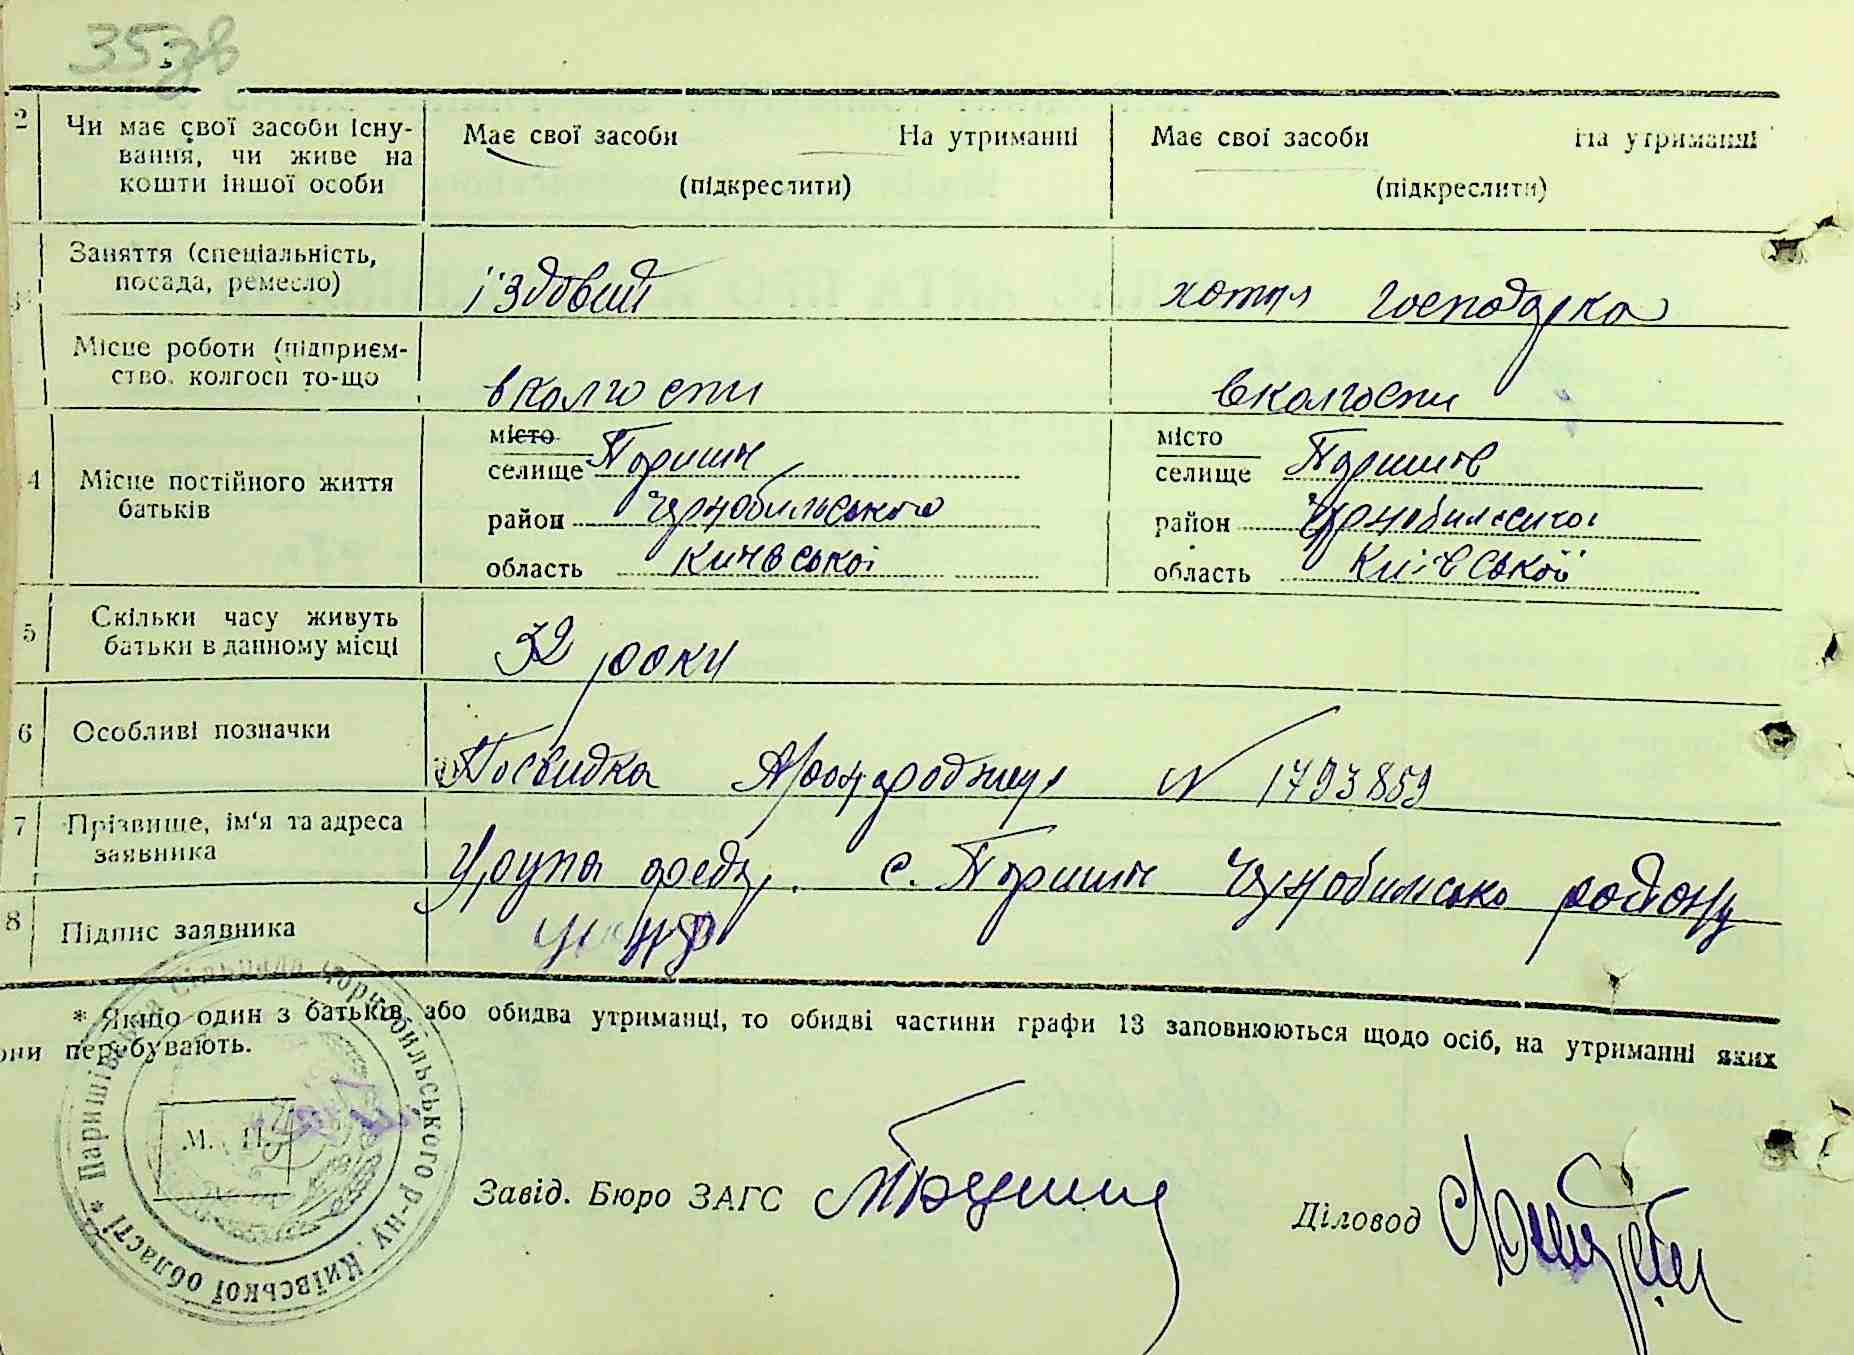 35зв
2 Чи має свої засоби існу- Має свої засоби На утриманні Має свої засоби На утриманні
вання, чи живе на
кошти іншої особи (підкреслити) (підкреслити)
Заняття (спеціальність,
посада, ремесло) їздовий хотня господарка
Місце роботи (підприєм-
ство, колгосп то-що в колгоспи в колгоспи
місто місто
селище Паришів селище Паришів
4 Місце постійного життя
батьків район Чорнобильського район Чорнобильської
область Київської область Київської
5 Скільки часу живуть
батьки в данному місці 32 роки
6 Особливі позначки Посвидка N 1793859
7 Прізвище, ім'я та адреса
заявника с. Паришів Чорнобильсько району
8 Підпис заявника
* Якщо один з батьків або обидва утриманці, то обидві частини графи 13 заповнюються щодо осіб, на утриманні яких
они перебувають.
Паришівська Сільрада Чорнобильського р-ну, Київської області *
М. П.
Завід. Бюро ЗАГС
Діловод